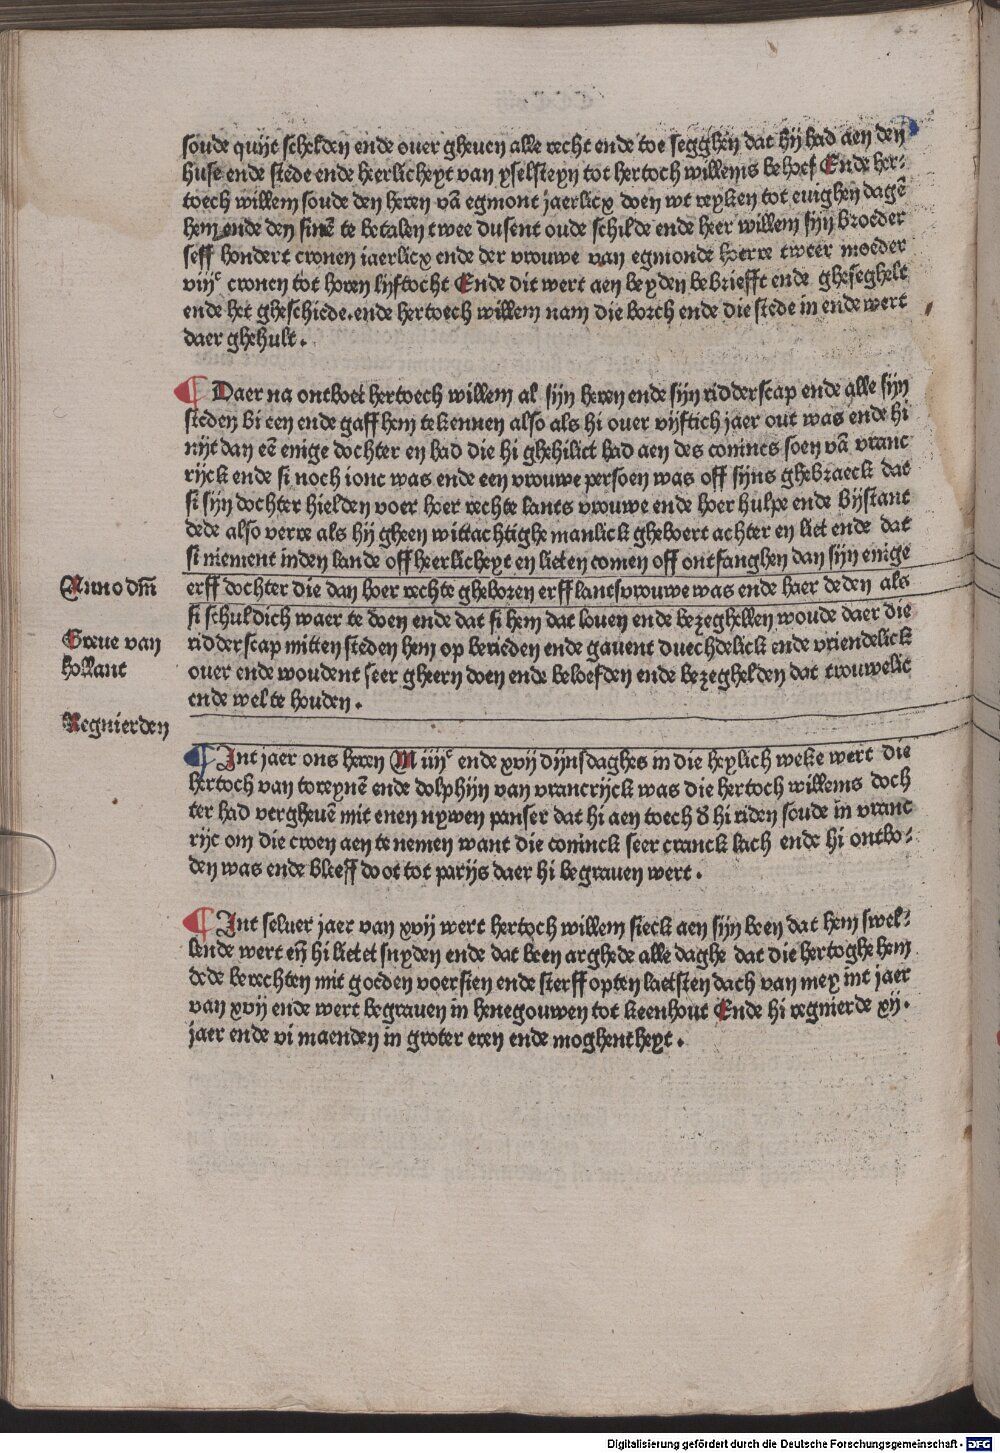 soude quijt schelden ende ouer gheuen alle recht ende toe segghen dat hij had aen den
huse ende stede ende heerlicheyt van yselsteyn tot hertoch willems behoef Ende her-
toech willem soude den heren vā egmont jaerlicx doen wt reyken tot euighen dagē
hem ende den sinē te betalen twee dusent oude schilde ende heer willem sijn broeder
seff hondert cronen iaerlicx ende der vrouwe van egmonde hoerre tweer moeder
viijᶜ cronen tot horen lijftocht Ende dit wert aen beyden bebriefft ende gheseghelt
ende het gheschiede.ende hertoech willem nam die borch ende die stede in ende wert
daer ghehult.
¶ Daer na ontboet hertoech willem al sijn heren ende sijn ridderscap ende alle sijn
steden bi een ende gaff hem te kennen also als hi ouer vijftich jaer out was ende hi
nijt dan eē enige dochter en had die hi ghehilict had aen des conincs soen vā vranc
rijck ende si noch ionc was ende een vrouwe persoen was off sijns ghebraeck dat
si sijn dochter hielden voer hoer rechte lants vrouwe ende hoer hulpe ende bijstant
dede also verre als hij gheen wittachtighe manlick gheboert achter en liet ende dat
si niement inden lande off heerlicheyt en lieten comen off ontfanghen dan sijn enige
erff dochter die dan hoer rechte gheboren erff lantsvrouwe was ende haer deden als
si schuldich waer te doen ende dat si hem dat louen ende bezeghellen woude daer die
ridderscap mitten steden hem op berieden ende gauent duechdelick ende vriendelick
ouer ende woudent seer gheern doen ende beloefden ende bezeghelden dat trouwelic
ende wel te houden.
Anno dm̄
Greue van
hollant
Regnierden
¶ Int jaer ons heren M iiijᶜ ende xvij dijnsdaghes in die heylich weke wert die
hertoch van toreynē ende dolphijn van vrancrijck was die hertoch willems doch
ter had vergheuē mit enen nywen panser dat hi aen toech d hi riden soude in vranc
rijc om die croen aen te nemen want die coninck seer cranck lach ende hi ontbo-
den was ende bleeff doot tot parijs daer hi begrauen wert.
¶ Int seluer jaer van xvij wert hertoch willem sieck aen sijn been dat hem swel-
lende wert en̄ hi liet et snyden ende dat been arghede alle daghe dat die hertoghe hem
dede berechten mit goeden voersien ende sterff opten laetsten dach van mey int jaer
van xvij ende wert begrauen in henegouwen tot keenhout Ende hi regnierde xij.
jaer ende vi maenden in groter eren ende moghentheyt.
Digitalisierung gefördert durch die Deutsche Forschungsgemeinschaft - DFG